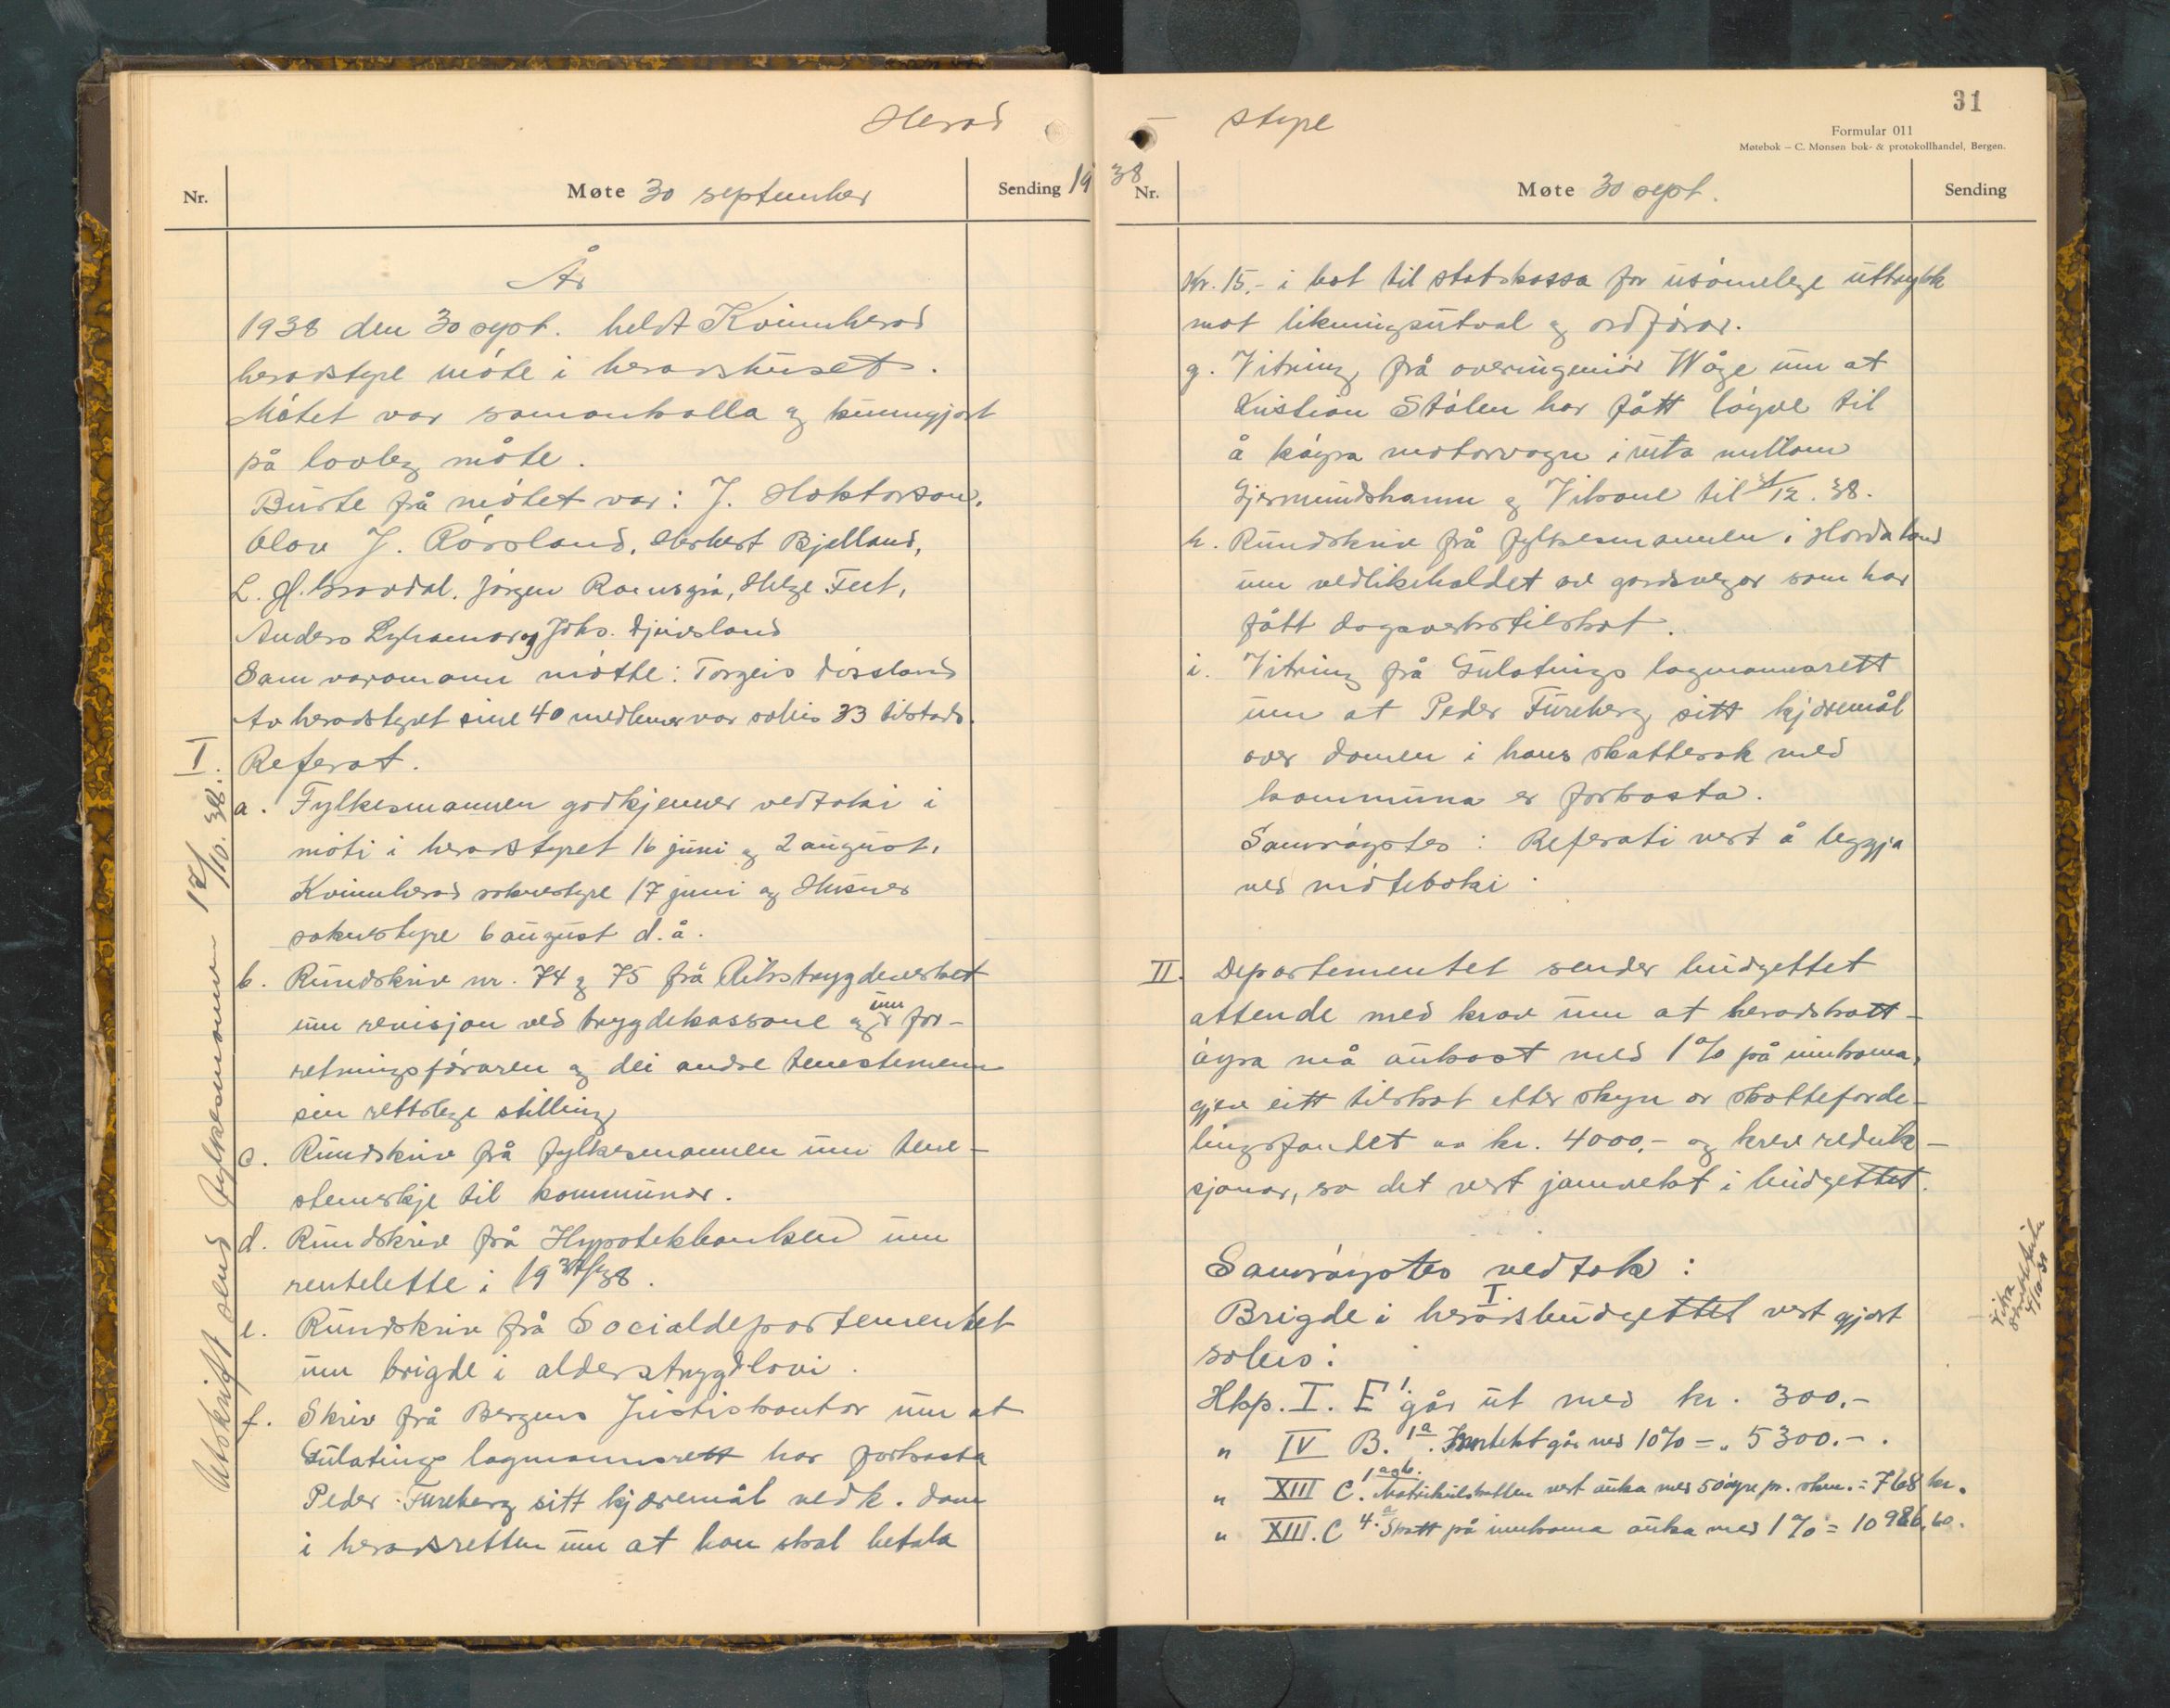 Herad
Nr.
Møte 30 september
Sending 19
År
1938 den 30 sept. heldt Kvinnherad
heradstyre møte i heradshuset.
Møtet var samankalla og kunngjort
på lovleg måte.
Burte frå møtet var: J. Haktorson,
Olav J. Røssland, Herbert Bjelland,
L. H. Gravdal, Jørgen Ramsgrå, Helge Feet,
Anders Lyhamar og Johs. Djuvsland
Sam varamann møtte: Torgeir
Av heradstyret sine 40 medlemer var soleis 33 tilstads.
I. Referat.
a. Fylkesmannen godkjenner vedtaki i
møti i heradstyret 16 juni og 2 august,
Kvinnherad soknestyre 17 juni og Husnes
soknestyre 6 august d.å.
b. Rundskriv nr. 74 og 75 frå Rikstrygdeverket
um revisjon ved trygdekassone og um for-
retningsføraren og dei andre tenestemenn
sin rettslege stilling
c. Rundskriv frå fylkesmannen um tene-
stemerkje til kommunar.
d. Rundskriv frå Hypotekbanken um
rentelette i 1937/38.
e. Rundskriv frå Socialdepartementet
um brigde i alderstrygdlovi.
f. Skriv frå Bergens Justiskontor um at
Gulatings lagmannsrett har forkasta
Peder Fureberg sitt kjæremål vedk. dom
i heradsretten um at han skal betala
Utskrift send fylkesmannen 17/10.38.
styre
31
Formular 011
Møtebok – C. Monsen bok- & protokollhandel, Bergen.
38
Nr.
Møte 30 sept.
Sending
Kr. 15.- i bot til statskassa for usømelege uttrykk
mot likningsutval og ordførar.
g. Vitring frå overingeniør Wåge um at
Kristian Stølen har fått løyve til
å køyra motorvogn i ruta millom
Gjermundshamn og Vikane til 31/12.38.
h. Rundskriv frå fylkesmannen i Hordaland
um vedlikehaldet av gardsvegar som har
fått dagsverkstilskot.
i. Vitring frå Gulatings lagmannsrett
um at Peder Fureberg sitt kjæremål
over domen i hans skattesak med
kommuna er forkasta.
Samrøystes: Referati vert å leggja
ved møteboki.
II. Departementet sender budgettet
attende med krav um at heradskatt-
øyra må aukast med 1% på innkoma,
gjev eitt tilskot etter skyn or skatteforde-
lingsfondet kr. 4000,- og krev reduk-
sjonar, so det vert jamvekt i budgettet.
Samrøystes vedtak:
I.
Brigde i heradsbudgettet vert gjort
soleis:
Hkp. I. E 1. går ut med kr. 300.-
" IV B. 1a. Inntekt går ned 10% = " 5300.-.
" XIII C. 1 a og b. Matrikulskatten vert auka med 50 øyre pr. skm. = 768 kr.
" XIII. C 4. a Skatt på innkoma auka med 1% = 10986,60.